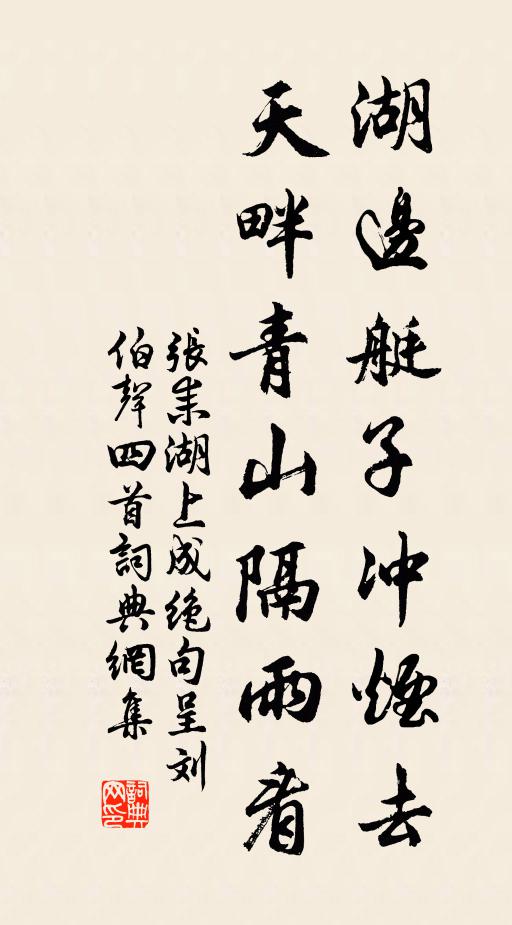 湖邊艇子冲煙去
天畔青山隔雨看
張耒湖上成绝句呈刘
伯聲四首詞典網集
詞典网印